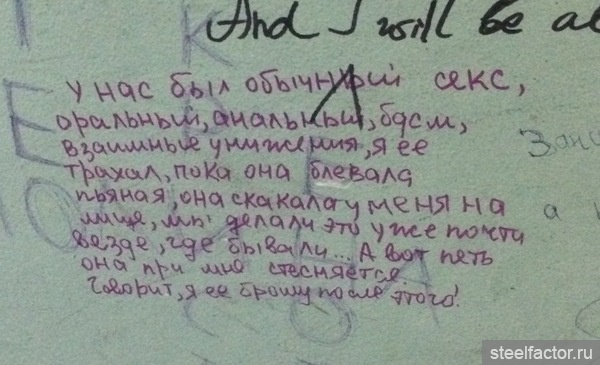 And I will be al
у нас был обычный секс,
оральный, анальный, бдсм,
взаимные унижения, я ее
трахал, пока она блевала
пьяная, она скакала у меня на
лице, мы делали это уже почти
везде, где бывали... А вот петь
она при мне стесняется.
Говорит, я ее брошу после этого!
steelfactor.ru